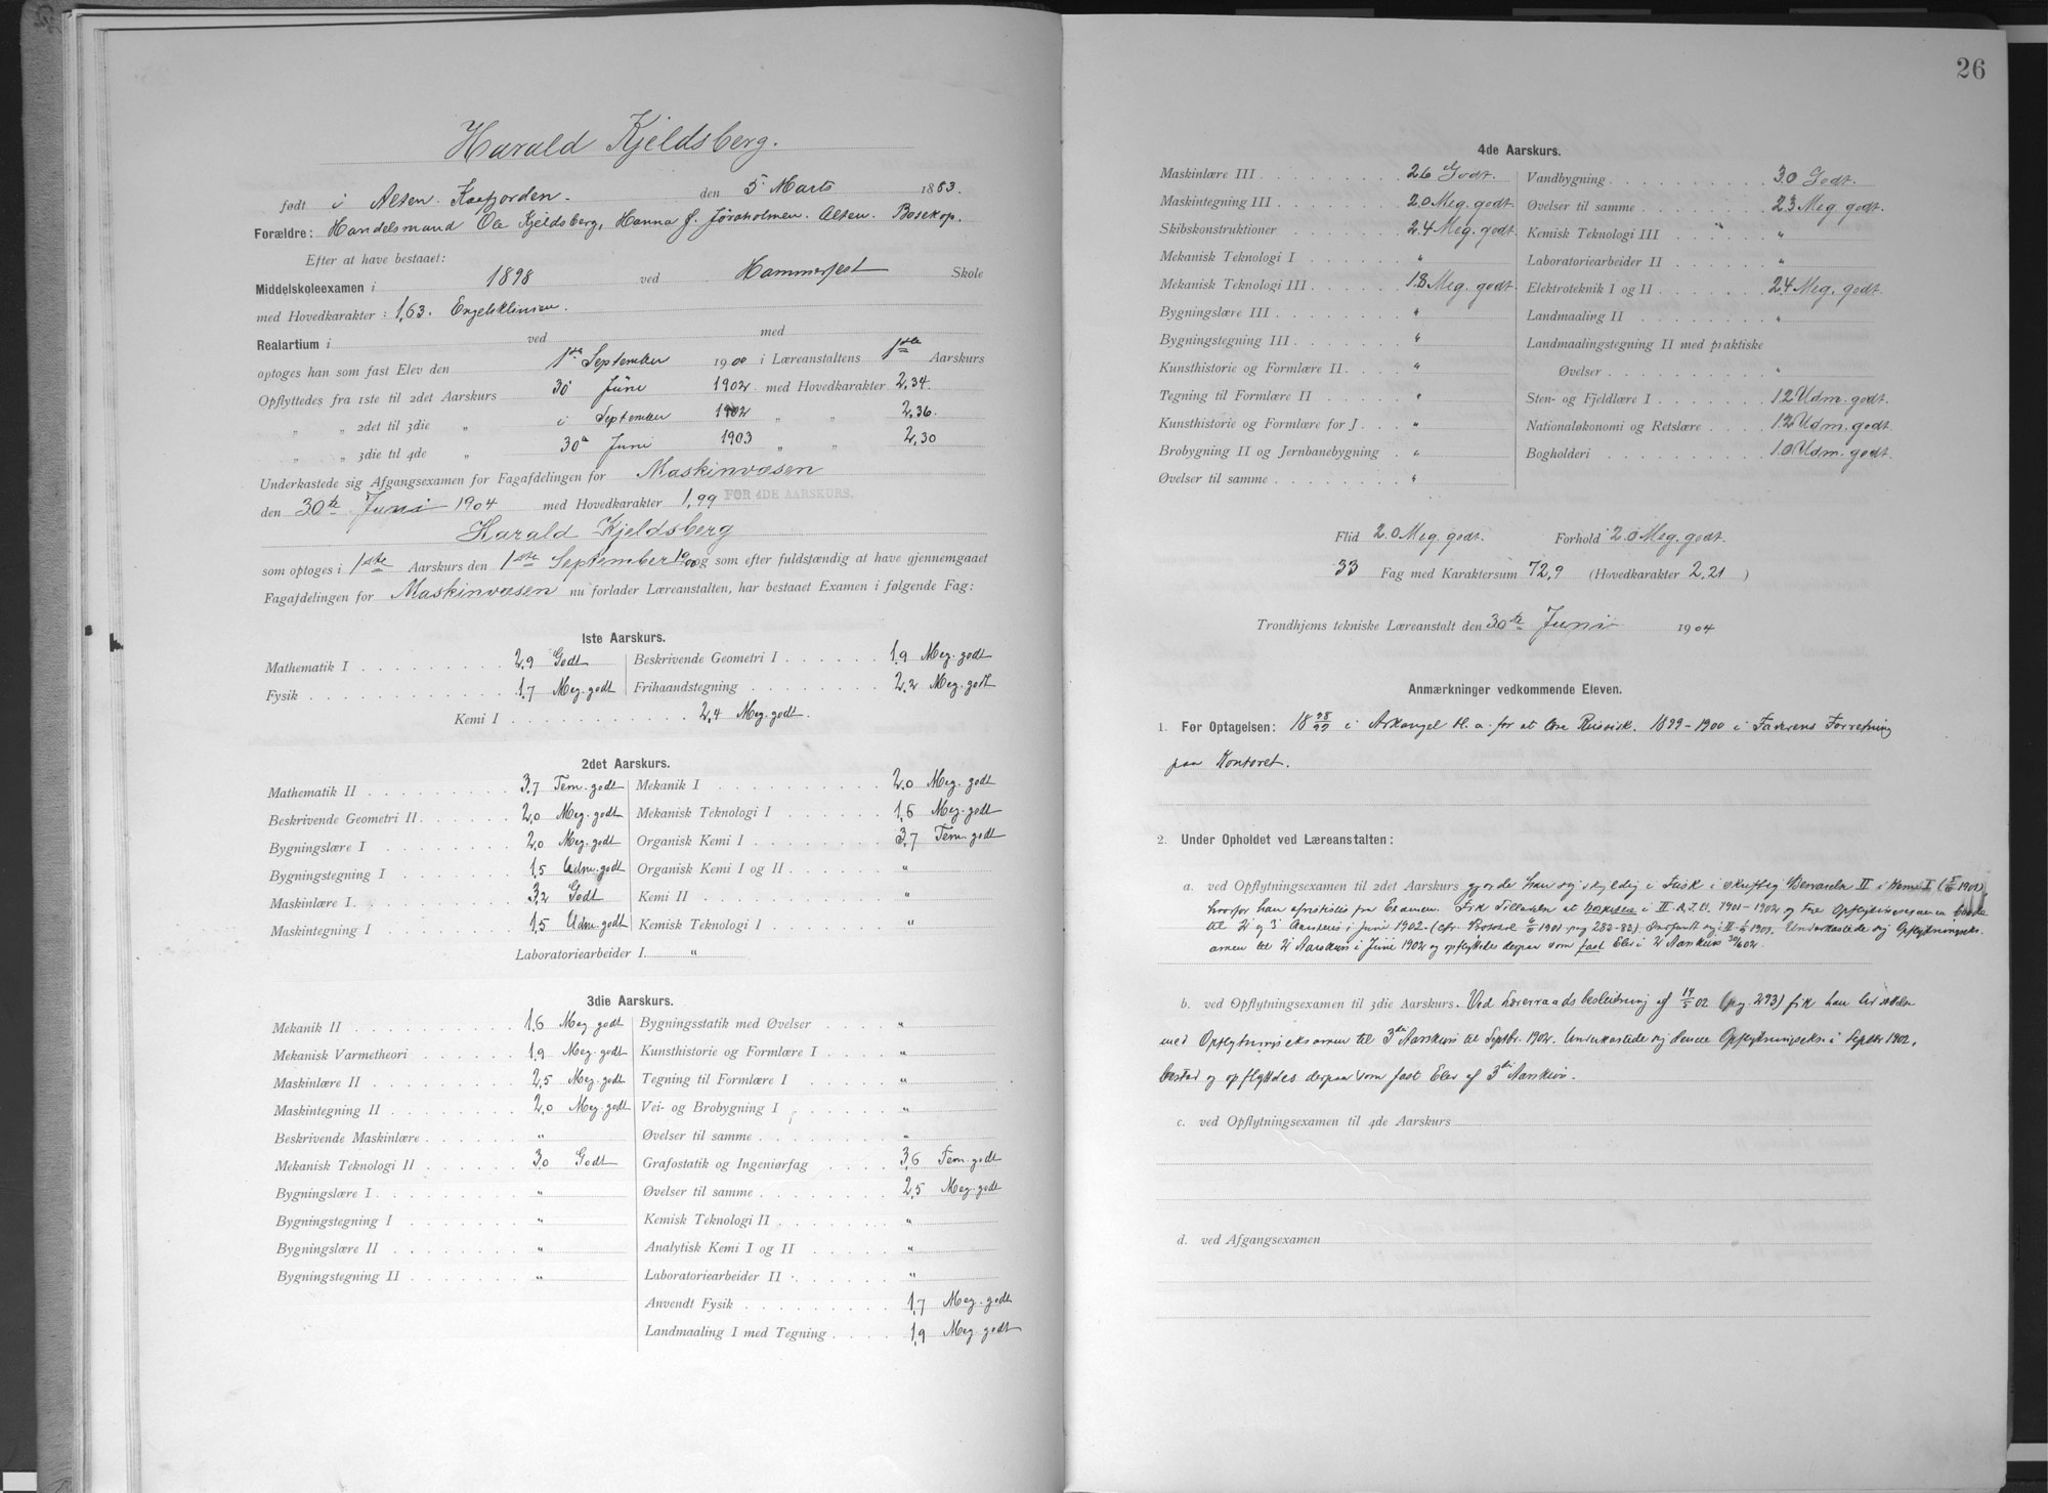 Harald Kjeldsberg.
født i Alten. Kaafjorden. den 5 Marts 1883.
Forældre: Handelsmand Ole Kjeldsberg, Hanna f. Jøraholmen. Alten. Bosekop.
Efter at have bestaaet:
Middelskoleexamen i 1898 ved Hammerfest Skole
med Hovedkarakter: 1,63. Engelsklinien.
Realartium i ved med
optoges han som fast Elev den 1ste September 1900 i Læreanstaltens 1ste Aarskurs
Opflyttedes fra 1ste til 2det Aarskurs 30 Juni 1902 med Hovedkarakter 2,34.
„ „ 2det til 3die „ i September 1902 „ „ 2,36.
„ „ 3die til 4de „ 30 Juni 1903 „ „ 2,30
Underkastede sig Afgangsexamen for Fagafdelingen for Maskinvæsen
den 30te Juni 1904 med Hovedkarakter 1,99 FOR 4DE AARSKURS.
Harald Kjeldsberg
som optoges i 1ste Aarskurs den 1ste September 1900 og som efter fuldstændig at have gjennemgaaet
Fagafdelingen for Maskinvæsen nu forlader Læreanstalten, har bestaaet Examen i følgende Fag:
1ste Aarskurs.
Mathematik I 2,9 Godt Beskrivende Geometri I 1,9 Meg. godt
Fysik 1,7 Meg. godt Frihaandstegning 2,2 Meg. godt
Kemi I 2,4 Meg. godt.
2det Aarskurs.
Mathematik II 3,7 Tem. godt Mekanik I 2,0 Meg. godt
Beskrivende Geometri II 2,0 Meg. godt Mekanisk Teknologi I 1,6 Meg. godt
Bygningslære I 2,0 Meg. godt Organisk Kemi I 3,7 Tem. godt
Bygningstegning I 1,5 Udm. godt Organisk Kemi I og II „
Maskinlære I 3,2 Godt Kemi II „
Maskintegning I 1,5 Udm. godt Kemisk Teknologi I „
Laboratoriearbeider I. „
3die Aarskurs.
Mekanik II 1,6 Meg godt Bygningsstatik med Øvelser „
Mekanisk Varmetheori 1,9 Meg. godt Kunsthistorie og Formlære I „
Maskinlære II 2,5 Meg. godt Tegning til Formlære I „
Maskintegning II 2,0 Meg. godt Vei- og Brobygning I „
Beskrivende Maskinlære „ Øvelser til samme „
Mekanisk Teknologi II 3,0 Godt Grafostatik og Ingeniørfag 3,6 Tem. godt
Bygningslære I „ Øvelser til samme 2,5 Meg. godt
Bygningstegning I „ Kemisk Teknologi II „
Bygningslære II „ Analytisk Kemi I og II „
Bygningstegning II „ Laboratoriearbeider II „
Anvendt Fysik 1,7 Meg. godt
Landmaaling I med Tegning 1,9 Meg. godt
26
4de Aarskurs.
Maskinlære III 2.6 Godt. Vandbygning 3.0 Godt.
Maskintegning III 2.0 Meg. godt. Øvelser til samme 2.3 Meg. godt.
Skibskonstruktioner 2.4 Meg. godt. Kemisk Teknologi III „
Mekanisk Teknologi I „ Laboratoriearbeider II „
Mekanisk Teknologi III 1.8 Meg. godt. Elektroteknik I og II 2.4 Meg. godt.
Bygningslære III „ Landmaaling II „
Bygningstegning III „ Landmaalingstegning II med praktiske
Kunsthistorie og Formlære II „ Øvelser „
Tegning til Formlære II „ Sten- og Fjeldlære I 1.2 Udm. godt.
Kunsthistorie og Formlære for J „ Nationaløkonomi og Retslære 1.2 Udm. godt.
Brobygning II og Jernbanebygning „ Bogholderi 1.0 Udm. godt.
Øvelser til samme „
Flid 2.0 Meg. godt. Forhold 2.0 Meg. godt.
33 Fag med Karaktersum 72,9 (Hovedkarakter 2,21)
Trondhjems tekniske Læreanstalt den 30te Juni 1904
Anmærkninger vedkommende Eleven.
1. Før Optagelsen: 18 98/99 i Arkangel bl. a. for at lære Russisk. 1899-1900 i Faderens Forretning
paa Kontoret.
2. Under Opholdet ved Læreanstalten:
a. ved Opflytningsexamen til 2det Aarskurs gjorde han sig skyldig i Fusk i skriftlig Besvarelse II i Kemi I
hvorfor han afvistes fra Examen. Fik Tilladelse at i II. 1901-1902 og tage Opflytningsexamen baade
til 2 og 3 Aarskurs i Juni 1902. (cfr. 1901 pag 282-82). Underkastede sig Opflytningseks-
amen til 2 Aarskurs i Juni 1902 og opflyttedes derpaa som fast Elev i 2 Aarskurs 30/6 02.
b. ved Opflytningsexamen til 3die Aarskurs. Ved Lærerraadsbeslutning af 14/5 02 (pag. 293) fik han
med Opflytningseksamen til 3die Aarskurs til Septbr. 1902. Underkastede sig denne Opflytningseks. i Septbr 1902,
bestod og opflyttedes derpaa som fast Elev af 3die Aarskurs.
c. ved Opflytningsexamen til 4de Aarskurs
d. ved Afgangsexamen